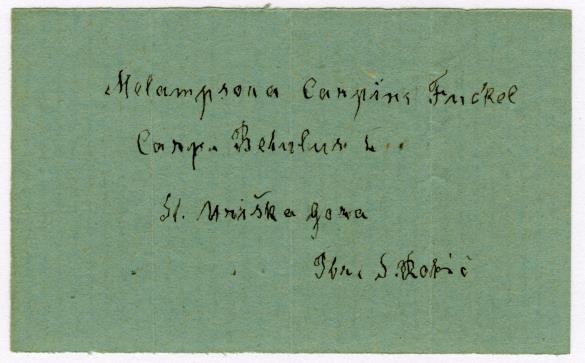 Melampsora Carpini Fuckel
Carp. Betulus L.
St. Urška gora
S. Robič